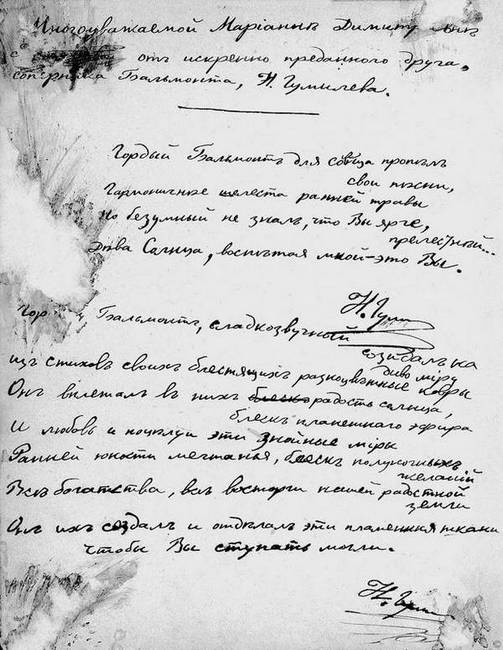 Многоуважаемой Маріаннѣ Димитр
с отъ искренно преданнаго друга,
соперника Бальмонта, Н. Гумилева.
Гордый Бальмонтъ для солнца пропѣлъ
свои пѣсни,
Гармоничнѣе шелеста ранней травы
Но безумный не зналъ, что Вы ярче,
прелестнѣй...
Дѣва Солнца, воспѣтая мной – это Вы.
Н. Гум
Гор Бальмонтъ, сладкозвучный
созидалъ на
диво міру
изъ стиховъ своихъ блестящихъ разноцвѣтные ковры
Онъ вплеталъ въ нихъ радость солнца,
блескъ пламеннаго эфира
И любовь и поцѣлуи эти знойные міры
Ранней юности мечтанья, блескъ полуночныхъ
желаній
Всѣ богатства, всѣ восторги нашей радостной
земли
Онъ ихъ создалъ и отдѣлалъ эти пламенныя ткани
Чтобы Вы ступать могли.
Н. Гум